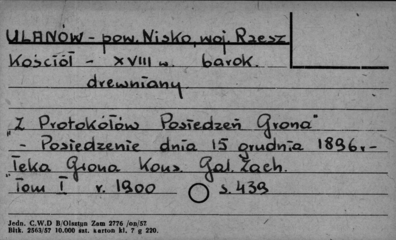 ULANÓW - pow. Nisko, woj. Rzesz
Kościół - XVIII w. barok.
drewniany.
"Z Protokółów Posiedzeń Grona"
- Posiedzenie dnia 15 grudnia 1896 r -
"Teka Grona Kons. Gal. Zach.
Tom I r. 1900 s. 439
Jedn. C.W.D B/Olsztyn Zam 2776 /on/57
Bltk. 2563/57 10.000 szt. karton kl. 7 g 220.